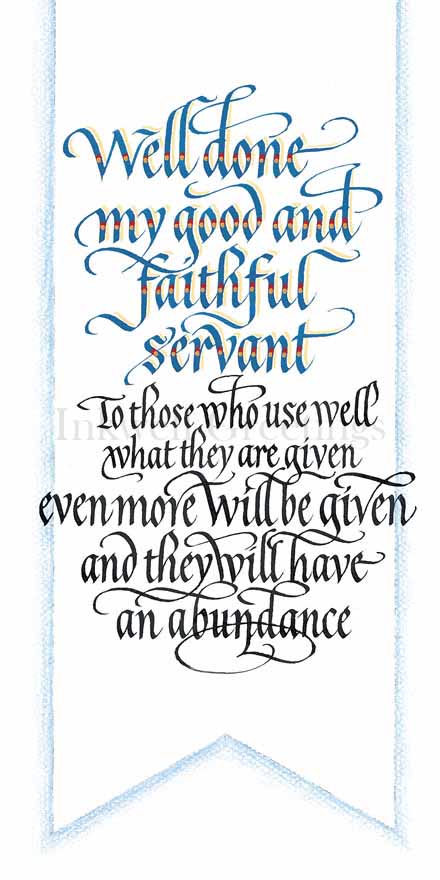 Well done
my good and
faithful
servant
To those who use well
Inkwell Greetings
what they are given
even more will be given
and they will have
an abundance